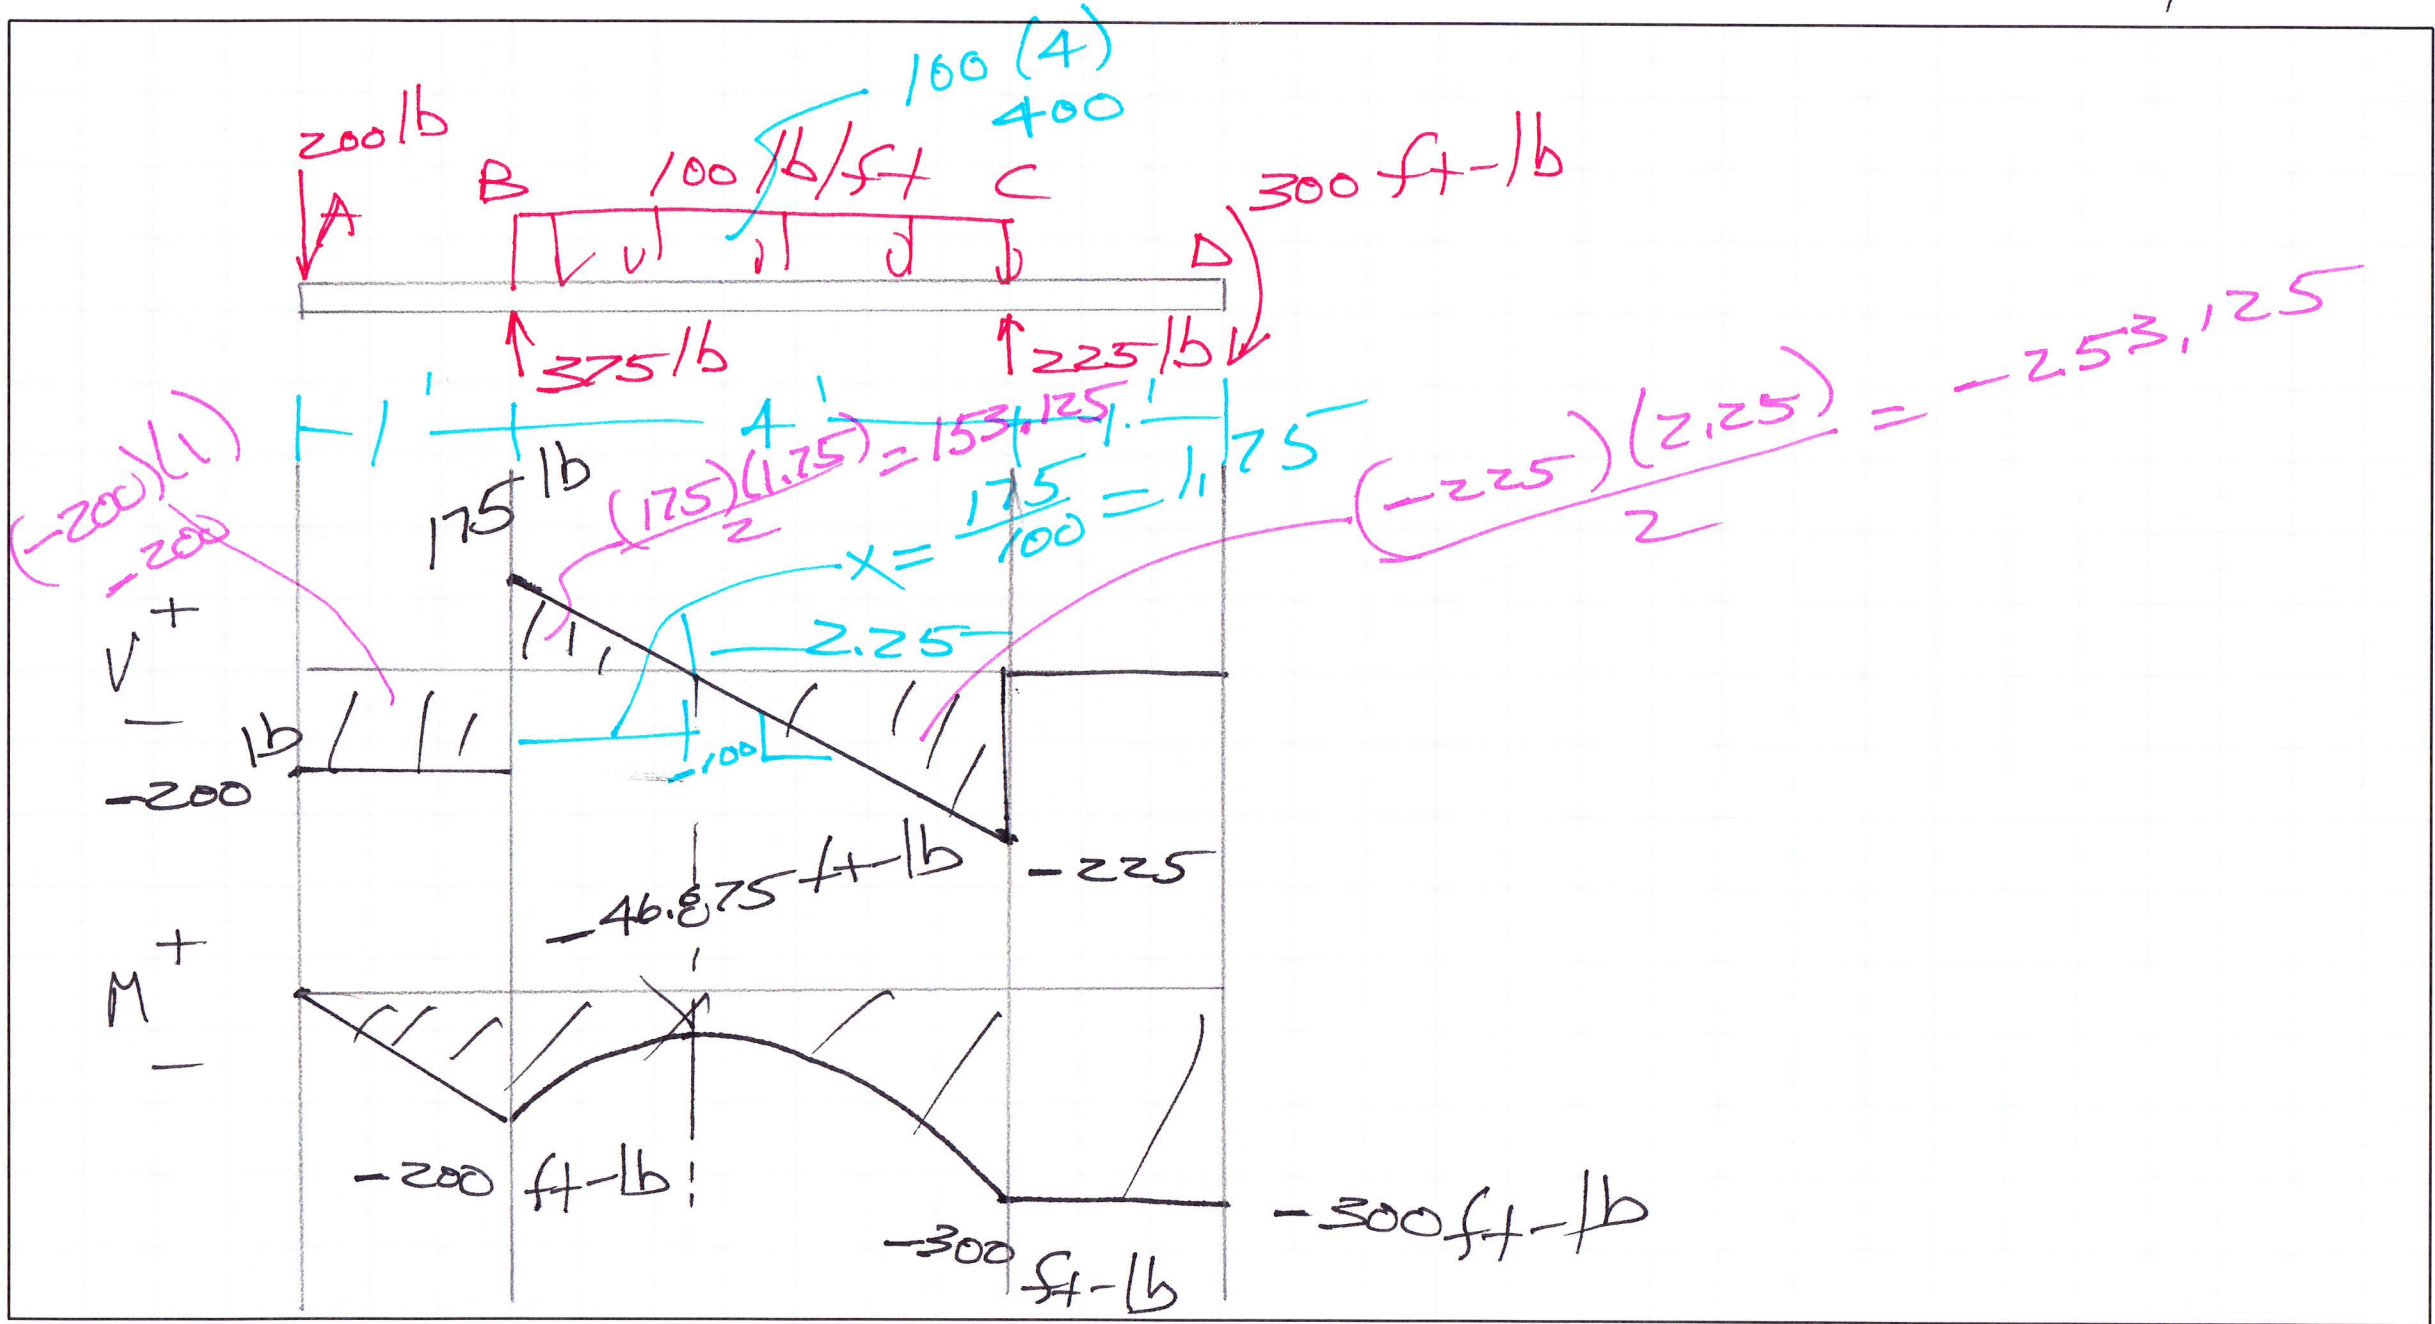 100 (4)
400
200 lb
A
B
100 lb/ft
C
D
300 ft-lb
375 lb
225 lb
1'
4'
1'
(-200)(1)
-200
175 lb
(175)(1.75) = 153.125
2
x = 175 = 1.75
100
(-225)(2.25) = -253.125
2
V
+
-
2.25
-200 lb
-100
1
-225
-46.875 ft-lb
M
+
-
-200 ft-lb
-300 ft-lb
-300 ft-lb